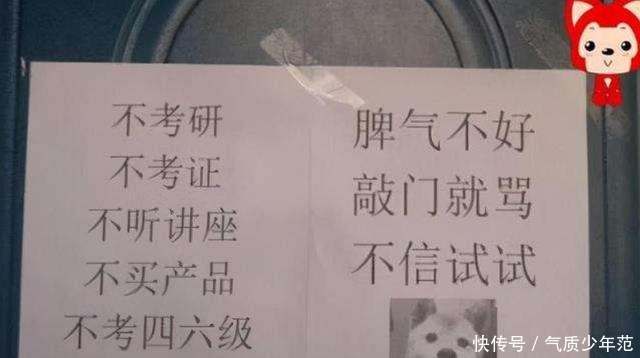 不考研
不考证
不听讲座
不买产品
不考四六级
脾气不好
敲门就骂
不信试试
快传号／气质少年范